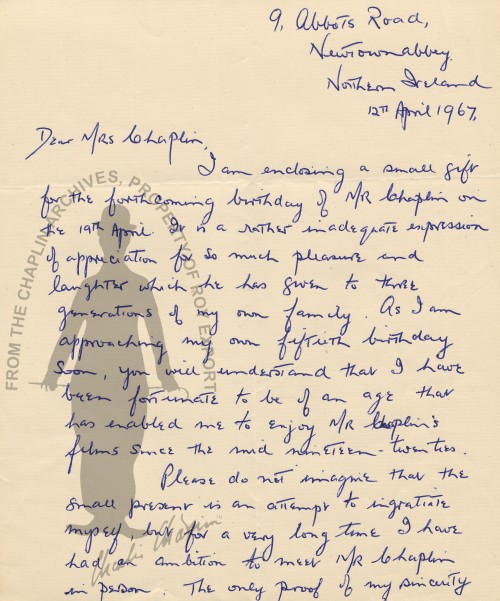 9, Abbots Road,
Newtownabbey.
Northern Ireland
12th April 1967.
Dear Mrs Chaplin,
I am enclosing a small gift
for the forthcoming birthday of Mr Chaplin on
the April. It is a rather inadequate expression
of appreciation for so much pleasure and
laughter which he has given to three
generations of my own family. As I am
approaching my own fiftieth birthday
soon, you will understand that I have
been fortunate to be of an age that
has enabled me to enjoy Mr Chaplin's
films since the mid nineteen-twenties.
Please do not imagine that the
small present is an attempt to ingratiate
myself, but for a very long time I have
had an ambition to meet Mr Chaplin
in person. The only proof of my sincerity
FROM THE CHAPLIN ARCHIVES, PROPERTY OF ROY EXPORT
Charlie Chaplin